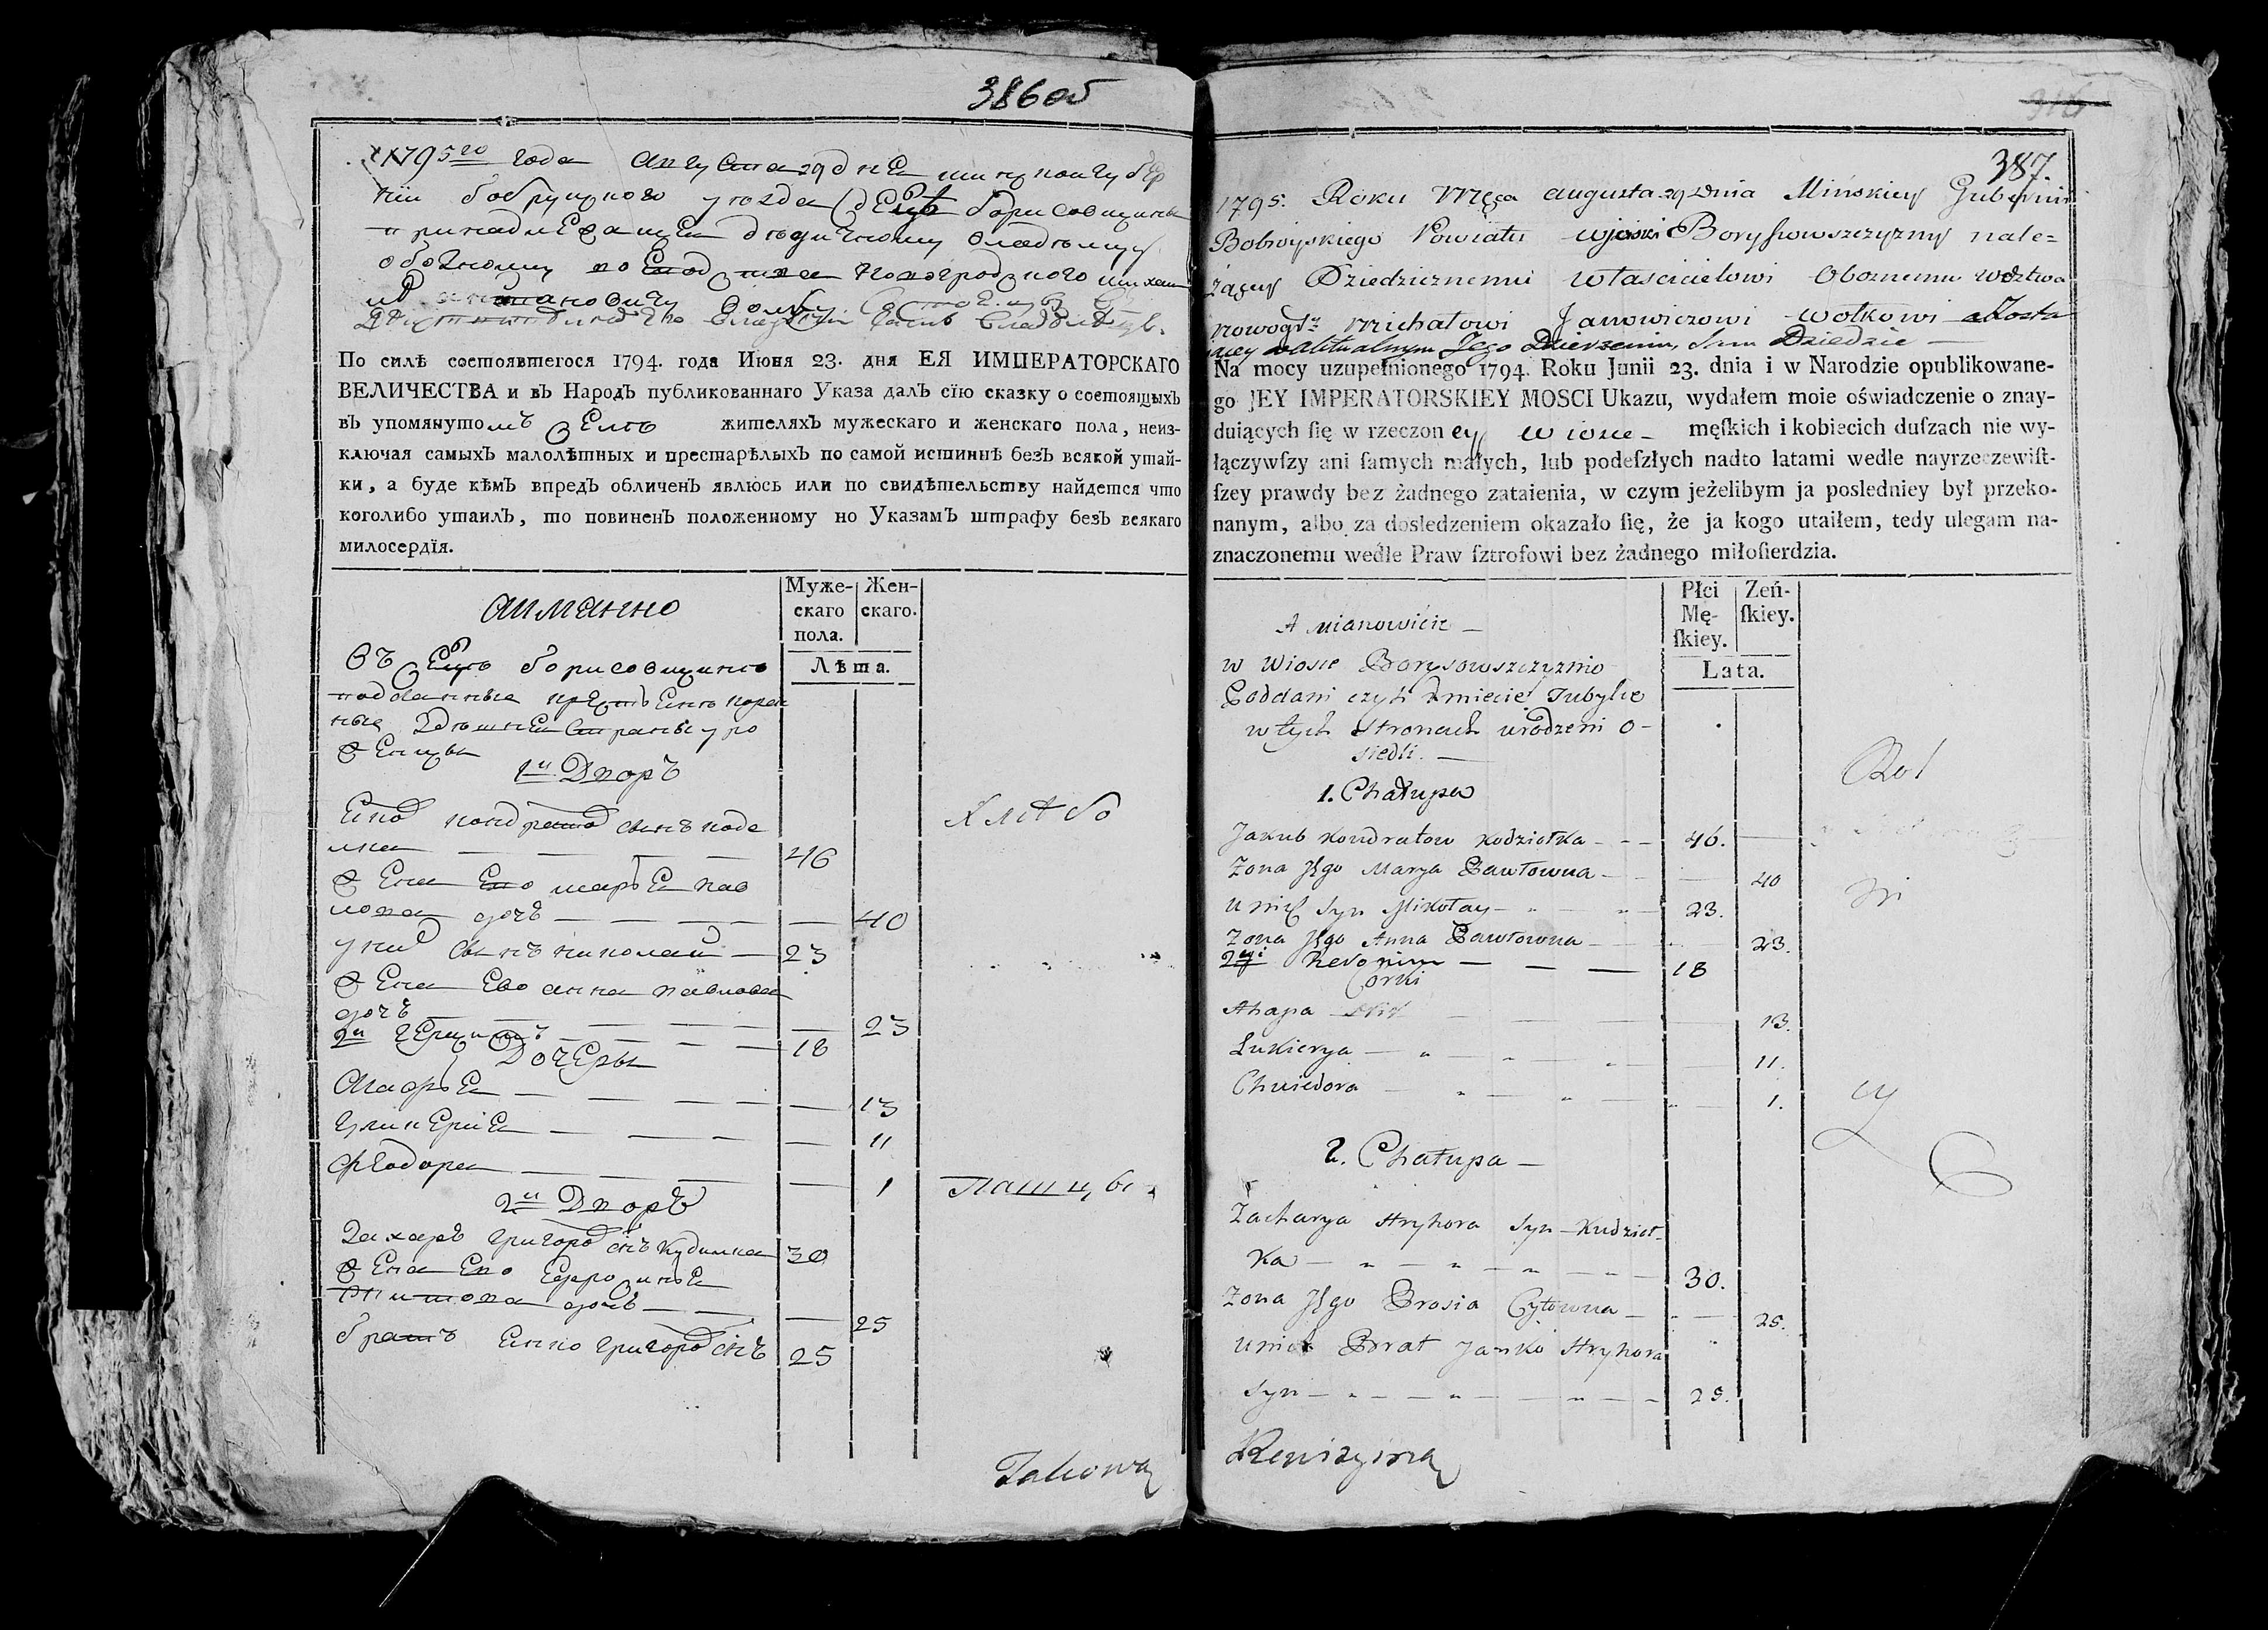 386об
1795го года августа 29 дня минской губер
нии бобруцкого уезда борисовщины
принадлежащей дедичному владельцу
обозному воеводства новогродского михаи
лу
По силѣ состоявшегося 1794. года Июня 23. дня ЕЯ ИМПЕРАТОРСКАГО
ВЕЛИЧЕСТВА и въ Народъ публикованнаго Указа далъ сїю сказку о состоящыхъ
въ упомянутомъ селѣ жителяхъ мужескаго и женскаго пола, неиз-
ключая самыхъ малолѣтныхъ и престарѣлыхъ по самой истиннѣ безъ всякой утай-
ки, а буде кѣмъ впредъ обличенъ явлюсь или по свидѣтельству найдется что
коголибо утаилъ, то повиненъ положенному по Указамъ штрафу безъ всякаго
милосердїя.
аимянно
Муже-
скаго
пола.
Жен-
скаго.
Лѣта.
въ борисовщине
подданные
здешней стороны уро
женцы
1й Дворъ
кондратов сынъ коде
лка — — — — 46
жена ево марья пав
лова дочь — — — — 40
у них сынъ николай — 23
жена ево анна павлова
дочь — — — — 23
2й — — — 18
Дочеры
Агафья — — — — 13
Гликерия — — — — 11
феодора — — — — 1
2й Дворъ
Захаръ григоров снъ кудилка 30
жена ево ефросинья
титова дочь — — — 25
братъ янко григоров снъ 25
Хлебо
пашцы.
Takowa
387.
1795. Roku Mſca augusta 29 Dnia Mińskiey Gubernii
Bobruyskiego Powiatu wioski Borysowszczyzny nale=
żącey Dziedzicznemu właścicielowi Oboznemu wdztwa
nowogrz Michałowi Janowiczowi wołkowi a Zosta
iącey w aktualnym Jego Dzierzeniu, Sam Dziedzic —
Na mocy uzupełnionego 1794. Roku Junii 23. dnia i w Narodzie opublikowane-
go JEY IMPERATORSKIEY MOSCI Ukazu, wydałem moie oświadczenie o znay-
duiących ſię w rzeczoney wiosce — męſkich i kobiecich duſzach nie wy-
łączywſzy ani ſamych małych, lub podeſzłych nadto latami wedle nayrzeczewiſt-
ſzey prawdy bez żadnego zataienia, w czym jeżelibym ja posledniey był przeko-
nanym, albo za dosledzeniem okazało ſię, że ja kogo utaiłem, tedy ulegam na-
znaczonemu wedle Praw ſztrofowi bez żadnego miłoſierdzia.
A mianowicie —
Płci
Mę-
ſkiey.
Zeń-
ſkiey.
Lata.
w wiosce Borysowszczyznie
Poddani czyli kmiecie Tubylce
w tych Stronach urodzeni o-
siedli. —
1. Chałupa
Jakub Kondratow Kodziołka - - - 46.
Zona Jego Marya Pawłowna - — 40
u nich Syn Mikołay - 23.
Zona Jego Anna Pawłowna — 23.
2gi — — — 18
Corki
Ahapa — 13.
Łukierya — 11.
Chwiedora — 1.
2. Chałupa —
Zacharya Hryhora Syn Kudzioł-
ka — 30.
Zona Jego Prosia Cytowna — 25.
u nich Brat Janko Hryhora
Syn — 25.
Rol
ni
cy
Rewizyina